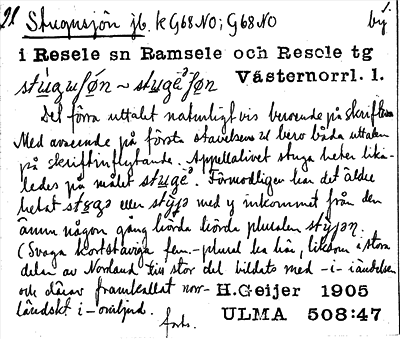 21 Stugusjön jb. k G68NO; G68NO by
i Resele sn Ramsele och Resele tg
stuguſøn ~ stugeſøn Västernorrl. l.
Det förra uttalet naturligt vis beroende på skriften
Med avseende på första stavelsens u bero båda uttalen
på skriftinflytande. Appellativet stuga heter lika-
ledes på målet stuge. Förmodligen har det äldre
hetat stuga eller styja med y inkommet från den
ännu någon gång hörda pluralen
(Svaga kortstaviga fem.-plural ha här, liksom i stora
delar av Norrland till stor del bildats med -i- i ändelsen
och därav framkallat norr- H.Geijer 1905
ländskt i-omljud. ULMA 508:47
forts.